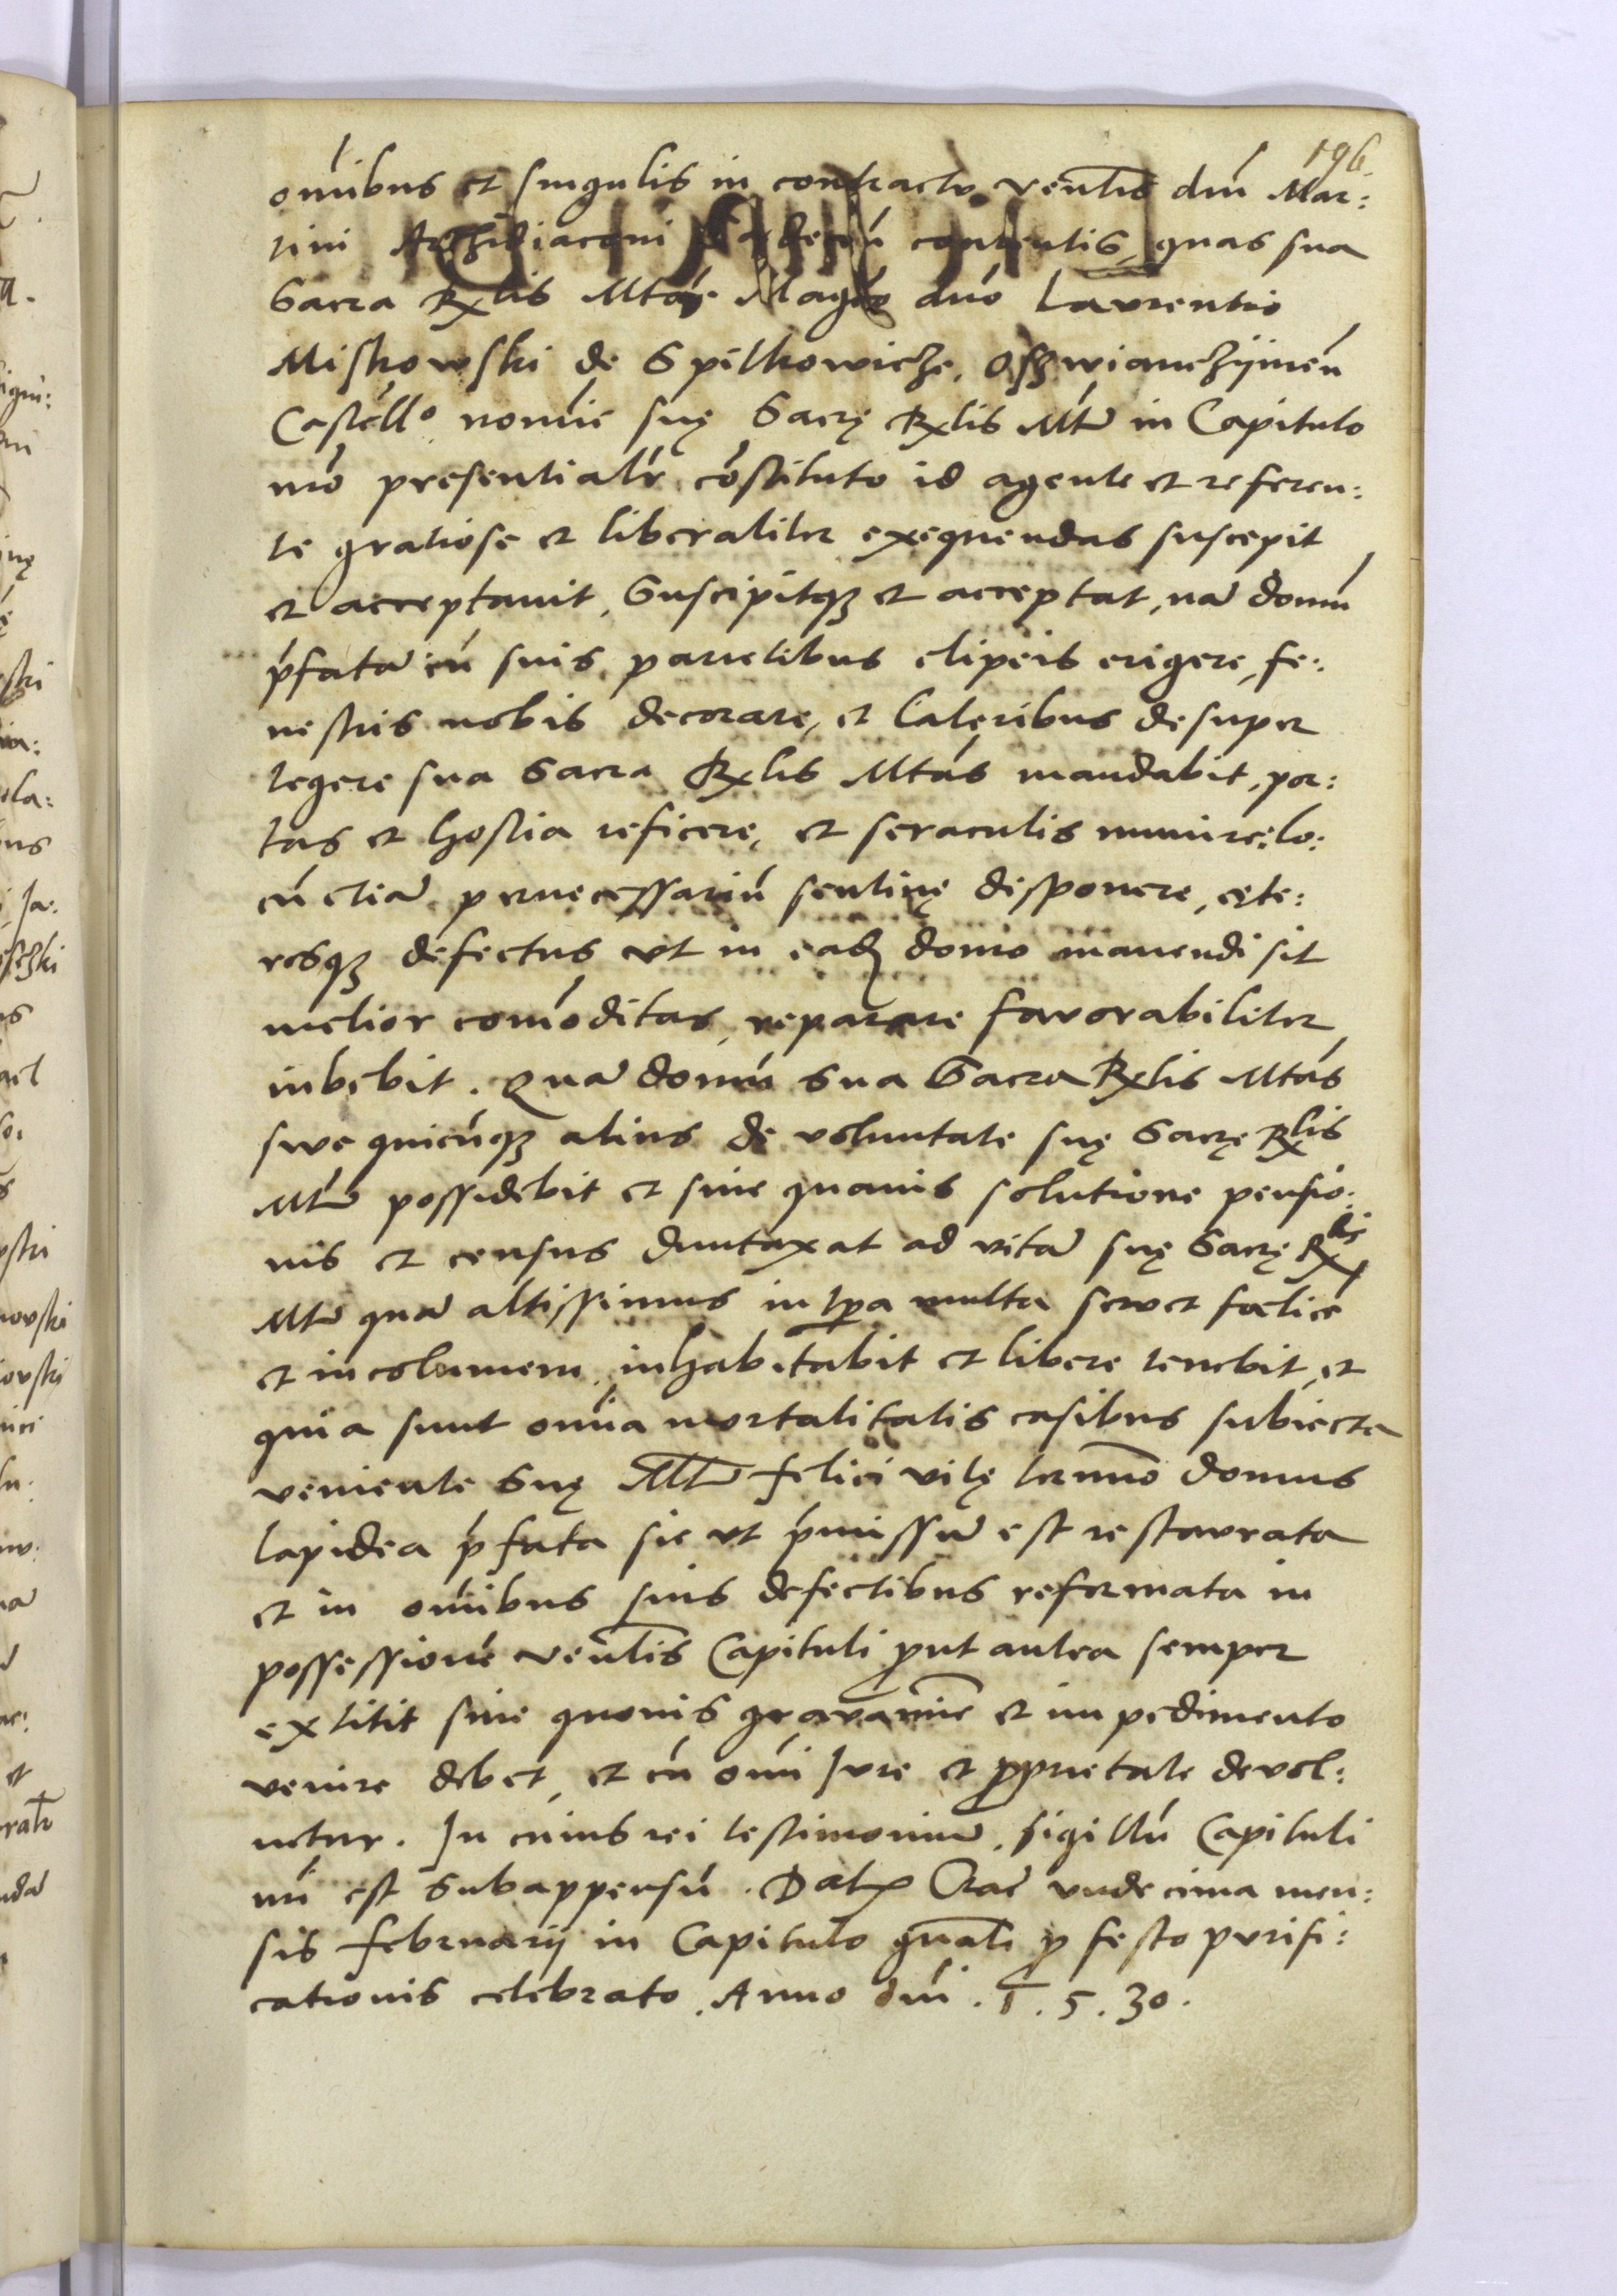 196
om̄ibus et singulis in contractu ven̄lis dn̄i Mar:
tini Archidiaconi contentis, quas sua
Sacra Rx̄lis Mtás Magco dn̄o Laurentio
Mischowski de Spitkowicze. Osswianczÿmen̄
Castellº nomīe suę Sacrę Rx̄lis Mtis in Capitulo
nr̄o presentialr̄ cōstituto id agente et referen:
te gratiose et liberaliter exequendas suscepit
et acceptauit, Suscipitqȝ et acceptat, nā domū
p̄fatā cū suis parietibus clipeis erigere, fe:
nestris nobis decorare, et lateribus desuper
tegere sua Sacra Rx̄lis Mtás mandabit, por:
tas et hostia reficere, et seraculis munire: lo:
cū etiā pernecessariū sentinę disponere, cęte:
resqȝ defectus vt in eadȝ domo manendi sit
melior comoditas, reparare fauorabiliter
iubebit. Quā domū Sua Sacra Rx̄lis Mtás
siue quicūqȝ alius de voluntate suę Sacrę Rx̄lis
Mtis possidebit et sine quauis solutione pensio:
nis et census duntaxat ad vitā suę Sacrę Rx̄lis
Mtis quā altissimus in tp̄a multa seruet fœlicē
et incolumem, inhabitabit et libere tenebit, et
quia sunt om̄ia mortalitatis casibus subiecta
veniente Suę Mtis felici vitę termīo domus
lapidea p̄fata sic vt p̄missū est restaurata
et in om̄ibus suis defectibus reformata in
possessionē ven̄lis Capituli ꝓut antea semper
extitit sine quouis grauamīe et impedimento
venire debet, et cū om̄i Jure et ꝓprietate deuol:
uetur. In cuius rei testimoniū, sigillū Capituli
nr̄i est Subappensū. Datū Crac̄ vndecima men:
sis februarij in Capitulo gn̄ali ꝓ festo purifi:
cationis celebrato. Anno dn̄i. 1.5.30.